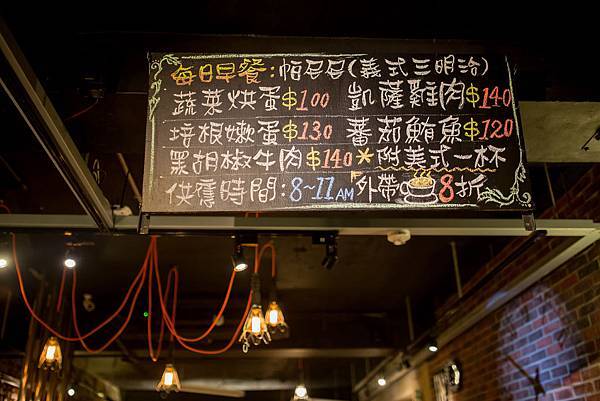 每日早餐:帕尼尼(義式三明治)
蔬菜烘蛋$100 凱薩雞肉$140
培根嫩蛋$130 蕃茄鮪魚$120
黑胡椒牛肉$140 *附美式一杯
供應時間:8~11AM 外帶8折